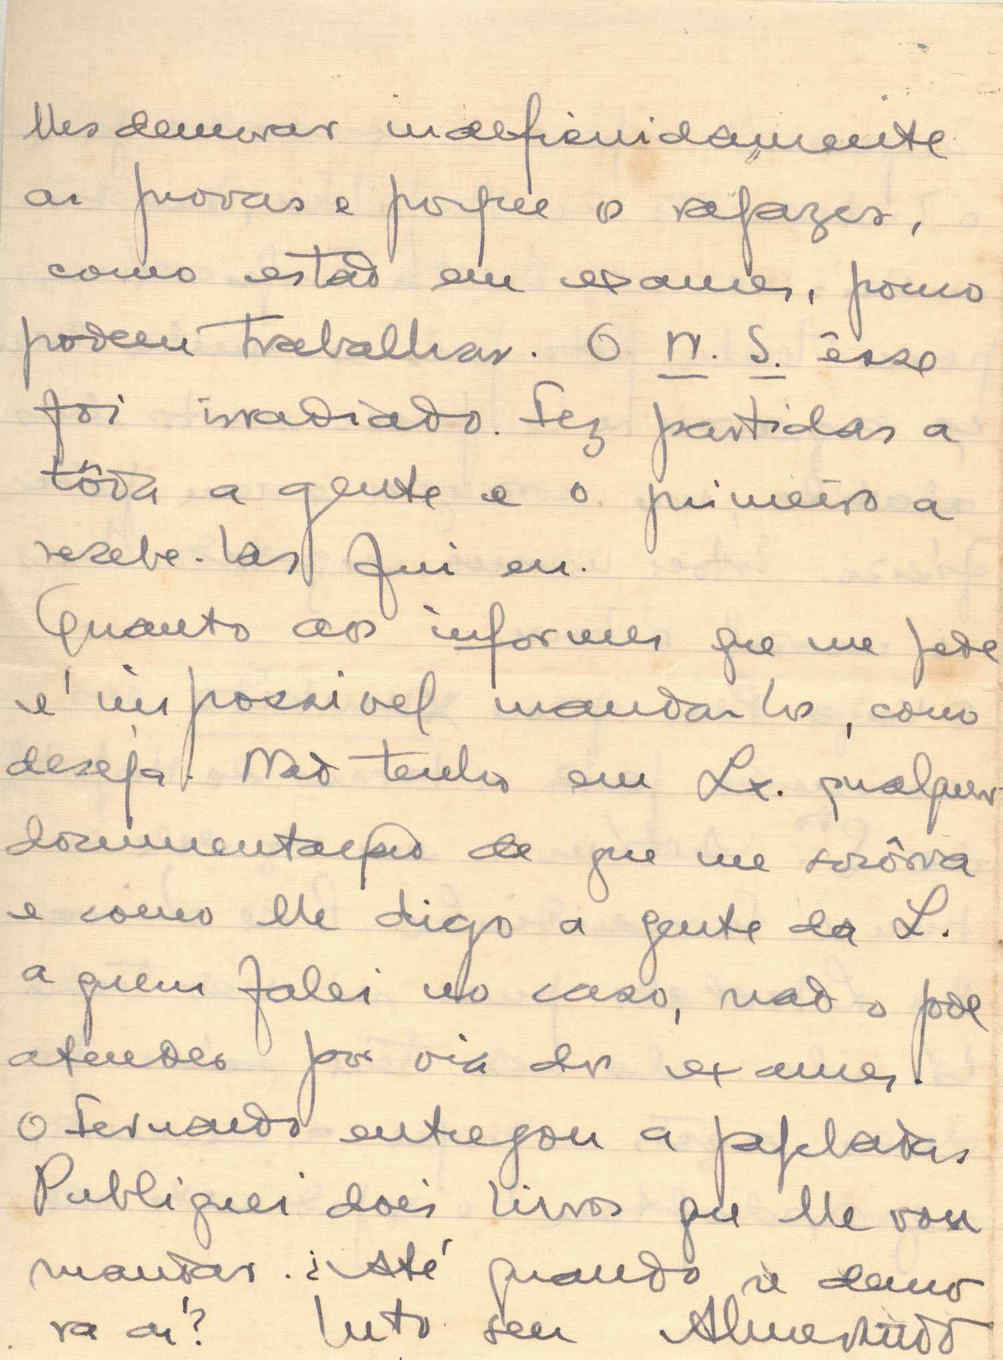 lhes demorar indefinidamente
as provas e porque os rapazes,
como estão em exames, pouco
podem trabalhar. O N. S. êsse
foi irradiado. Fez partidas a
tôda a gente e o primeiro a
recebe-las fui eu.
Quanto aos informes que me pede
é impossivel mandar-lhos, como
deseja. Não tenho em Lx. qualquer
documentação de que me socôrra
e como lhe digo a gente da L.
a quem falei no caso, não o pode
atender por via dos exames.
O Fernando entregou a papelada
Publiquei dois livros que lhe vou
mandar. ¿Até quando se demo
ra aí? Mto seu